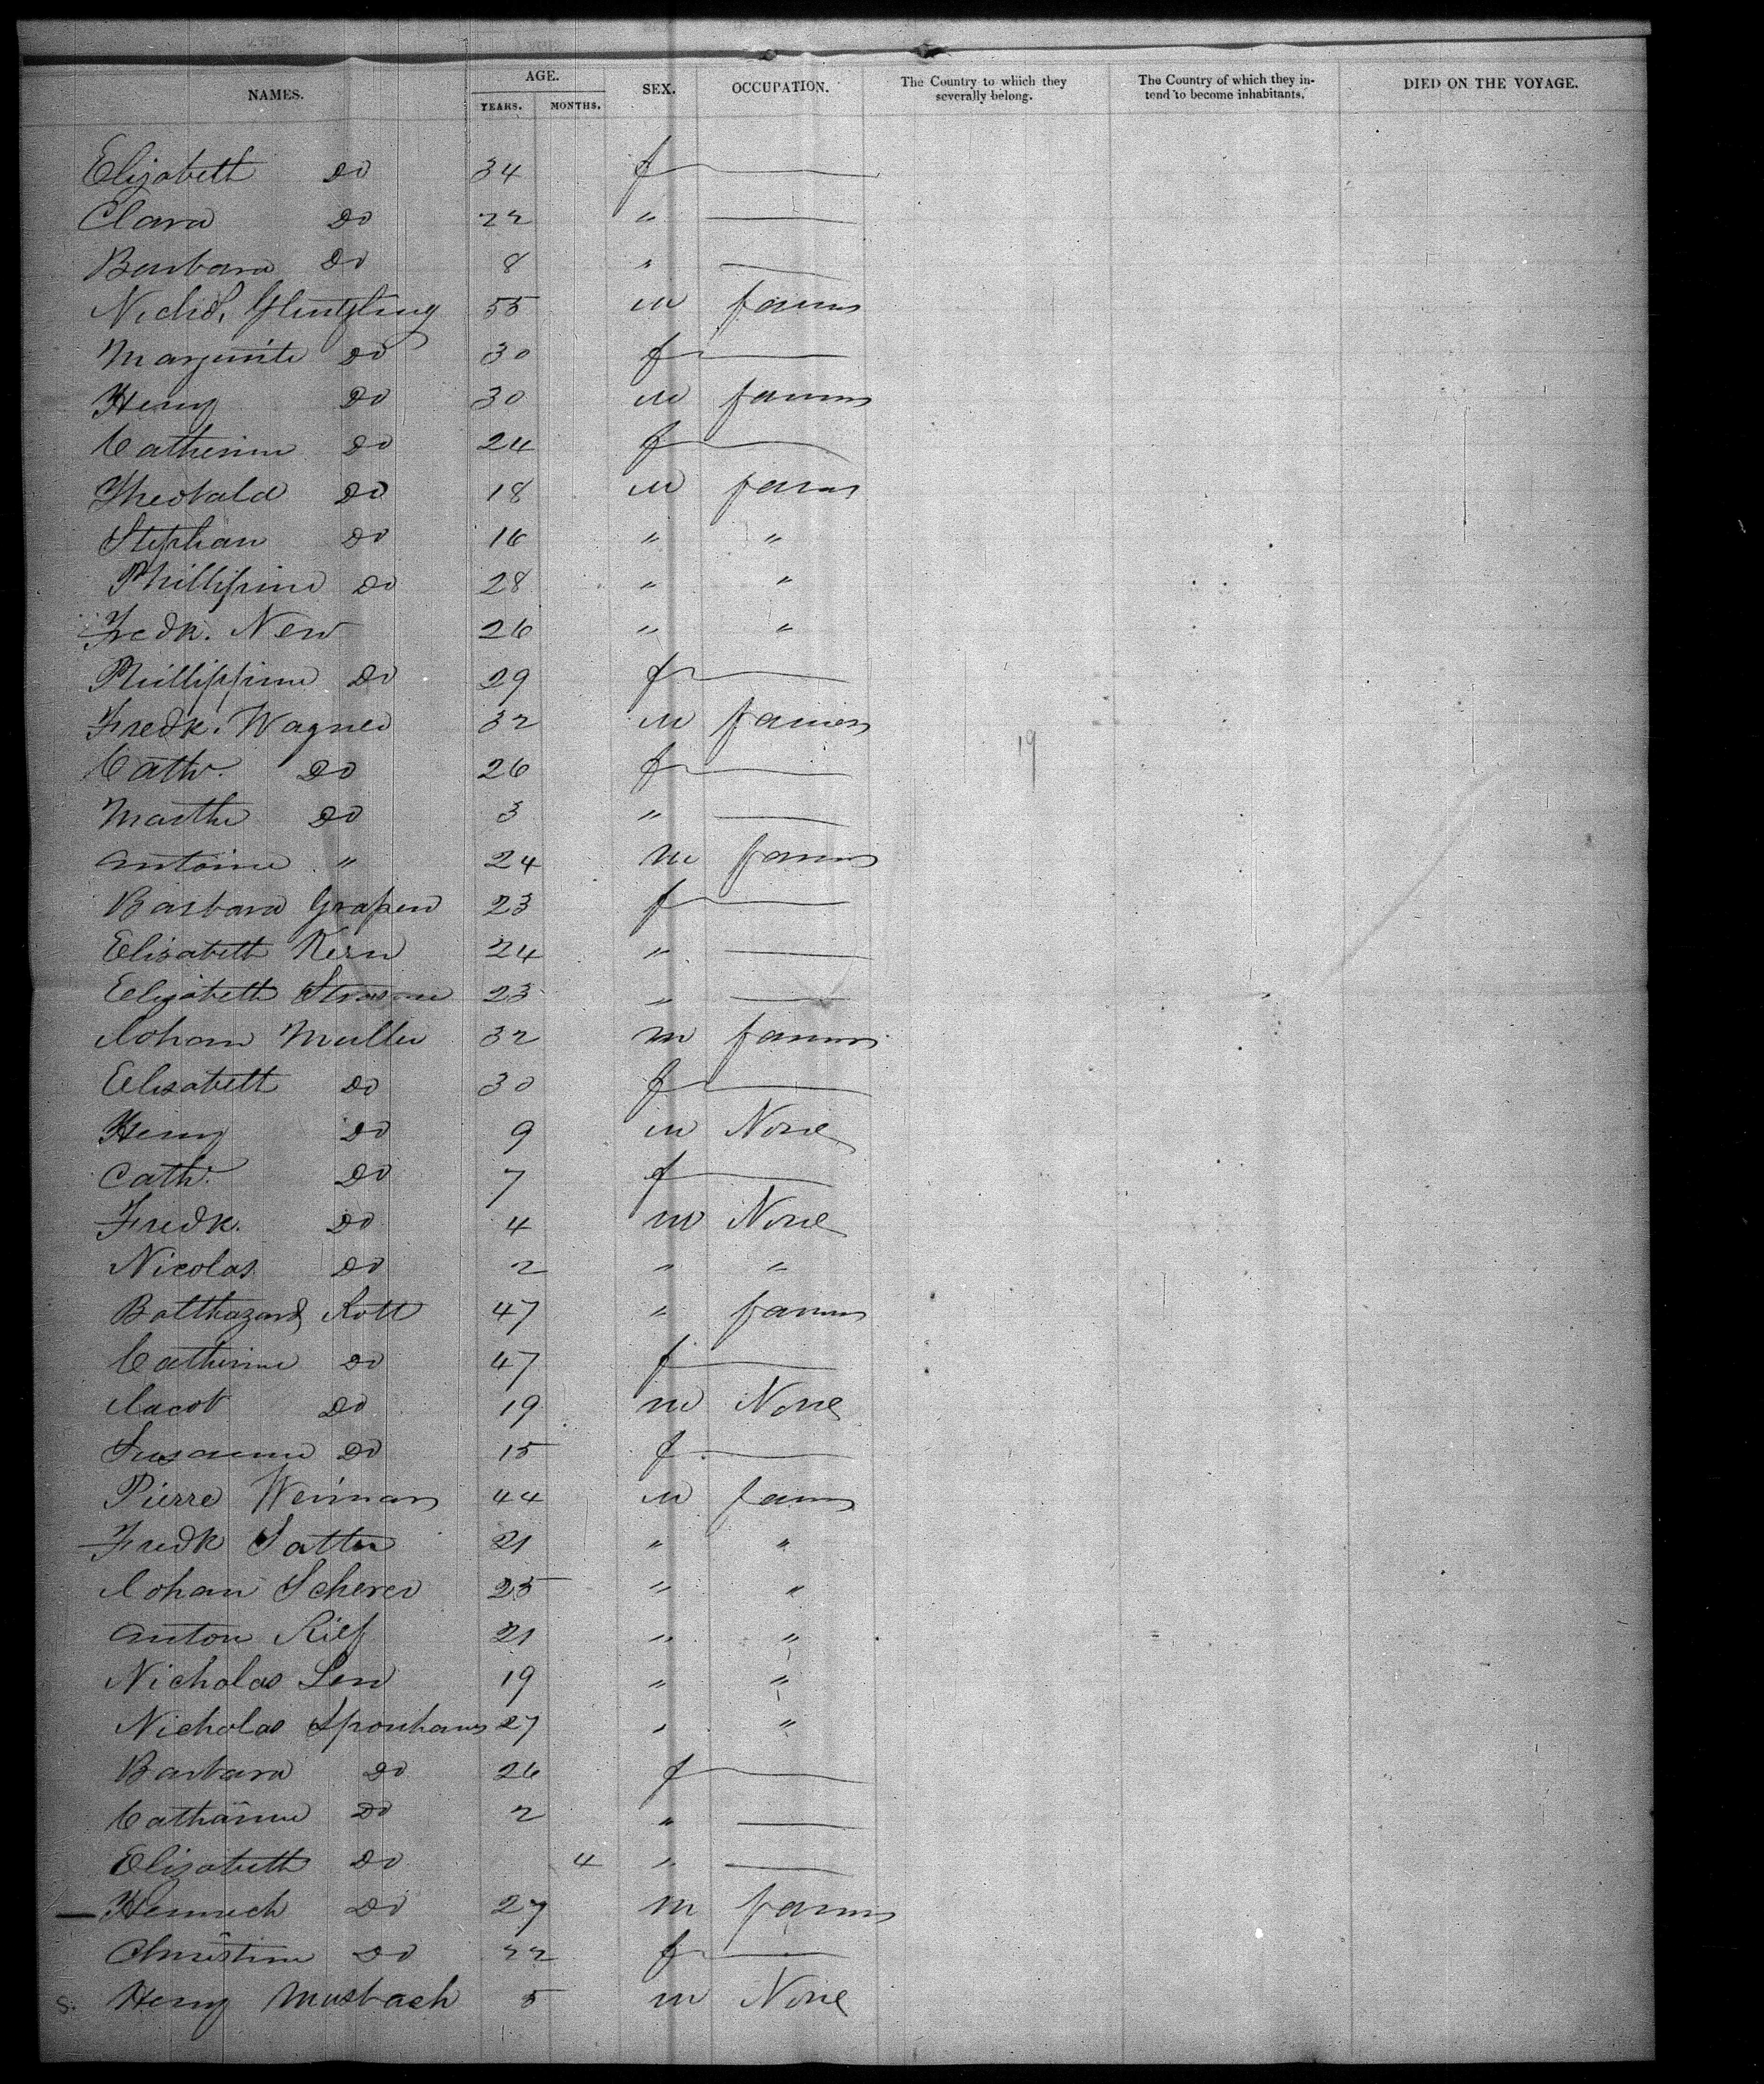 NAMES. AGE. SEX. OCCUPATION. The Country to which they severally belong. The Country of which they intend to become inhabitants. DIED ON THE VOYAGE.
YEARS. MONTHS.
Elizabeth Do 34 f
Clara Do 22 "
Barbara Do 8 "
Nichs. 55 m farmer
Marguerite Do 30 f
Henry Do 30 m farmer
Catherine Do 24 f
Theobald Do 18 m farmer
Stephan Do 16 " "
Phillipine Do 28 " "
Fredk. New 26 " "
Phillippine Do 29 f
Fredk. Wagner 32 m farmer
19
Cath. Do 26 f
Marthe Do 3 "
Antoine " 24 m farmer
Barbara 23 f
Elisabeth Kern 24 "
Elizabeth 23 "
Johann Muller 32 m farmer
Elisabeth Do 30 f
Henry Do 9 m None
Cath. Do 7 f
Fredk. Do 4 m None
Nicolas Do 2 " "
Balthazard Rott 47 " farmer
Catherine Do 47 f
Jacob Do 19 m None
Susanne Do 15 f
Pierre Weiman 44 m farmer
Fredk Satter 21 " "
Johann Scherer 25 " "
Anton Rief 21 " "
Nicholas 19 " "
Nicholas 27 " "
Barbara Do 26 f
Catharine Do 2 "
Elizabeth Do 4 "
Heinrich Do 27 m farmer
Christine Do 22 f
Henry Musbach 5 m None